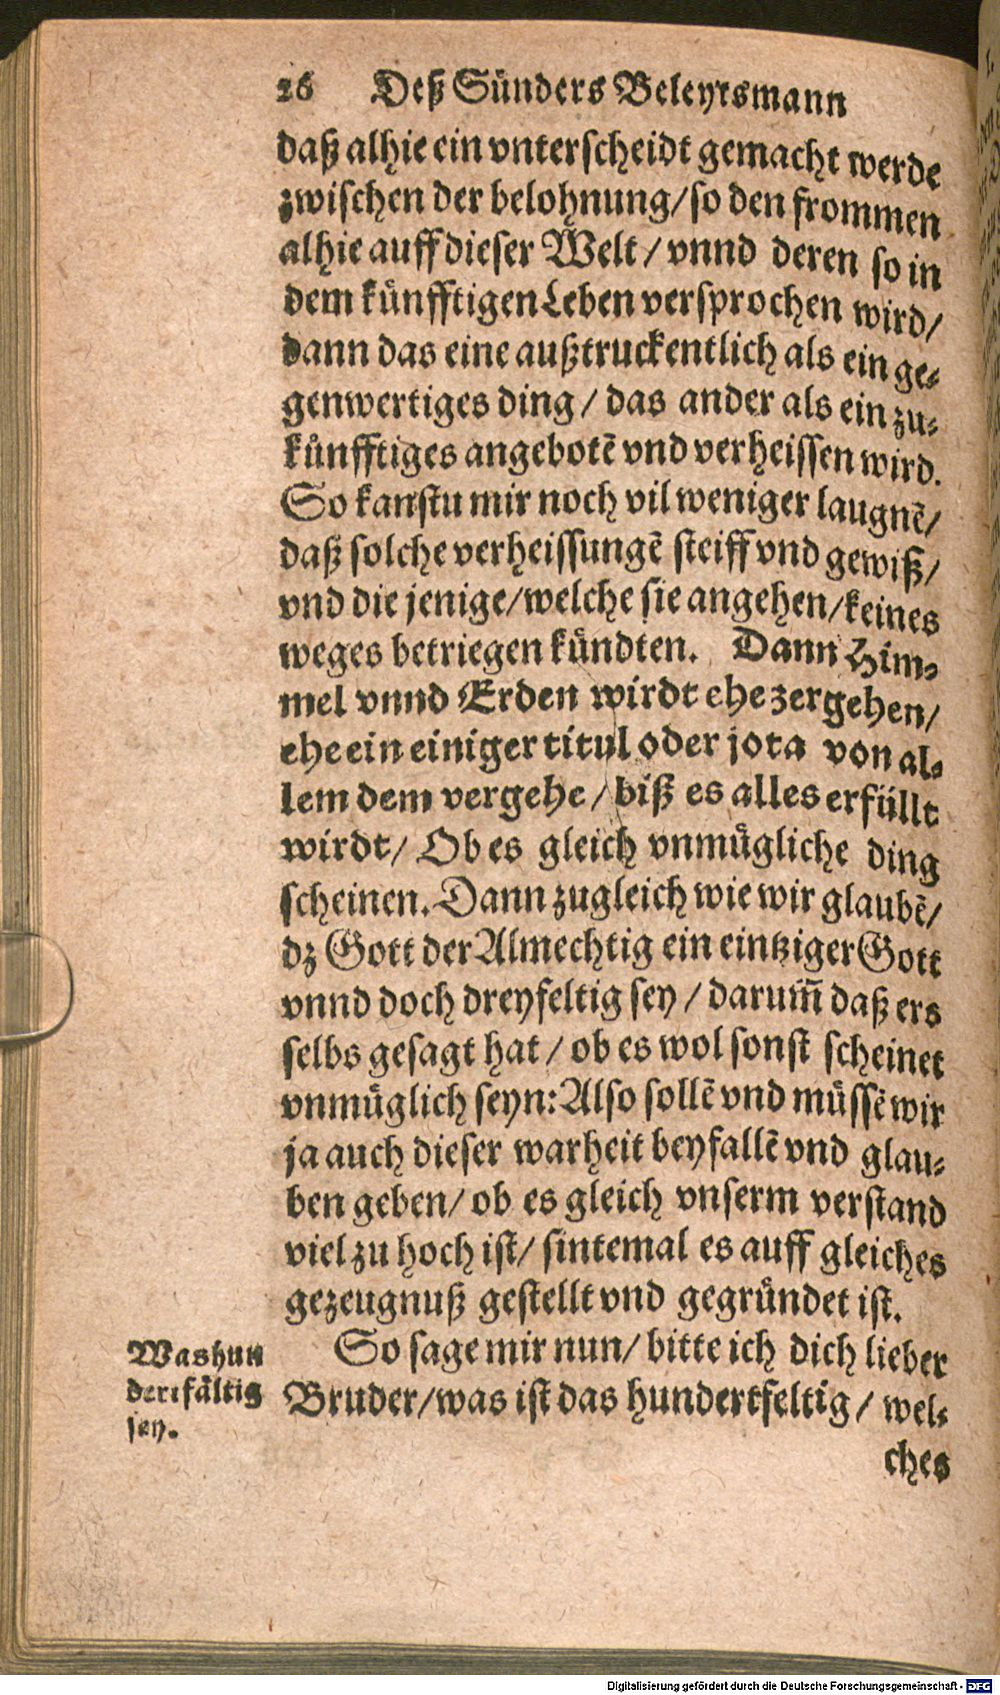 26 Deß Sünders Beleytsmann
daß alhie ein vnterscheidt gemacht werde
zwischen der belohnung/so den frommen
alhie auff dieser Welt/ vnnd deren so in
dem künfftigen Leben versprochen wird/
dann das eine außtruckentlich als ein ge⸗
genwertiges ding/ das ander als ein zu⸗
künfftiges angebotē vnd verheissen wird.
So kanstu mir noch vil weniger laugnē/
daß solche verheissungē steiff vnd gewiß/
vnd die jenige/welche sie angehen/keines
weges betriegen kündten. Dann Him⸗
mel vnnd Erden wirdt ehe zergehen/
ehe ein einiger titul oder jota von al⸗
lem dem vergehe/ biß es alles erfüllt
wirdt/ Ob es gleich vnmügliche ding
scheinen. Dann zugleich wie wir glaubē/
dz Gott der Almechtig ein eintziger Gott
vnnd doch dreyfeltig sey/ darum̄ daß ers
selbs gesagt hat/ ob es wol sonst scheinet
vnmüglich seyn: Also sollē vnd müssē wir
ja auch dieser warheit beyfallē vnd glau⸗
ben geben/ ob es gleich vnserm verstand
viel zu hoch ist/ sintemal es auff gleiches
gezeugnuß gestellt vnd gegründet ist.
So sage mir nun/ bitte ich dich lieber
Bruder/was ist das hundertfeltig/ wel⸗
ches
Was hun
dertfältig
sey.
Digitalisierung gefördert durch die Deutsche Forschungsgemeinschaft - DFG